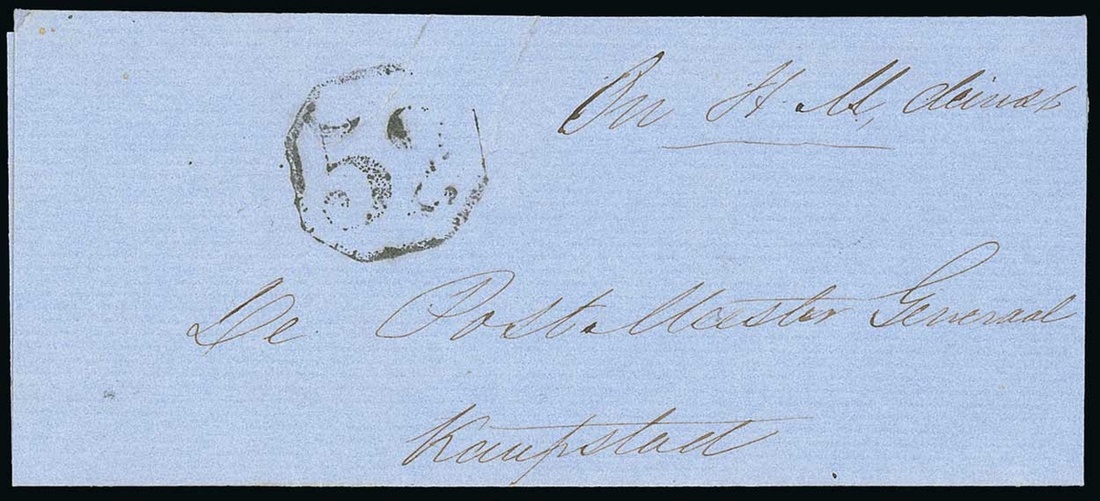 On H. M, deinst
52
De Post Meester Generaal
Kaapstad